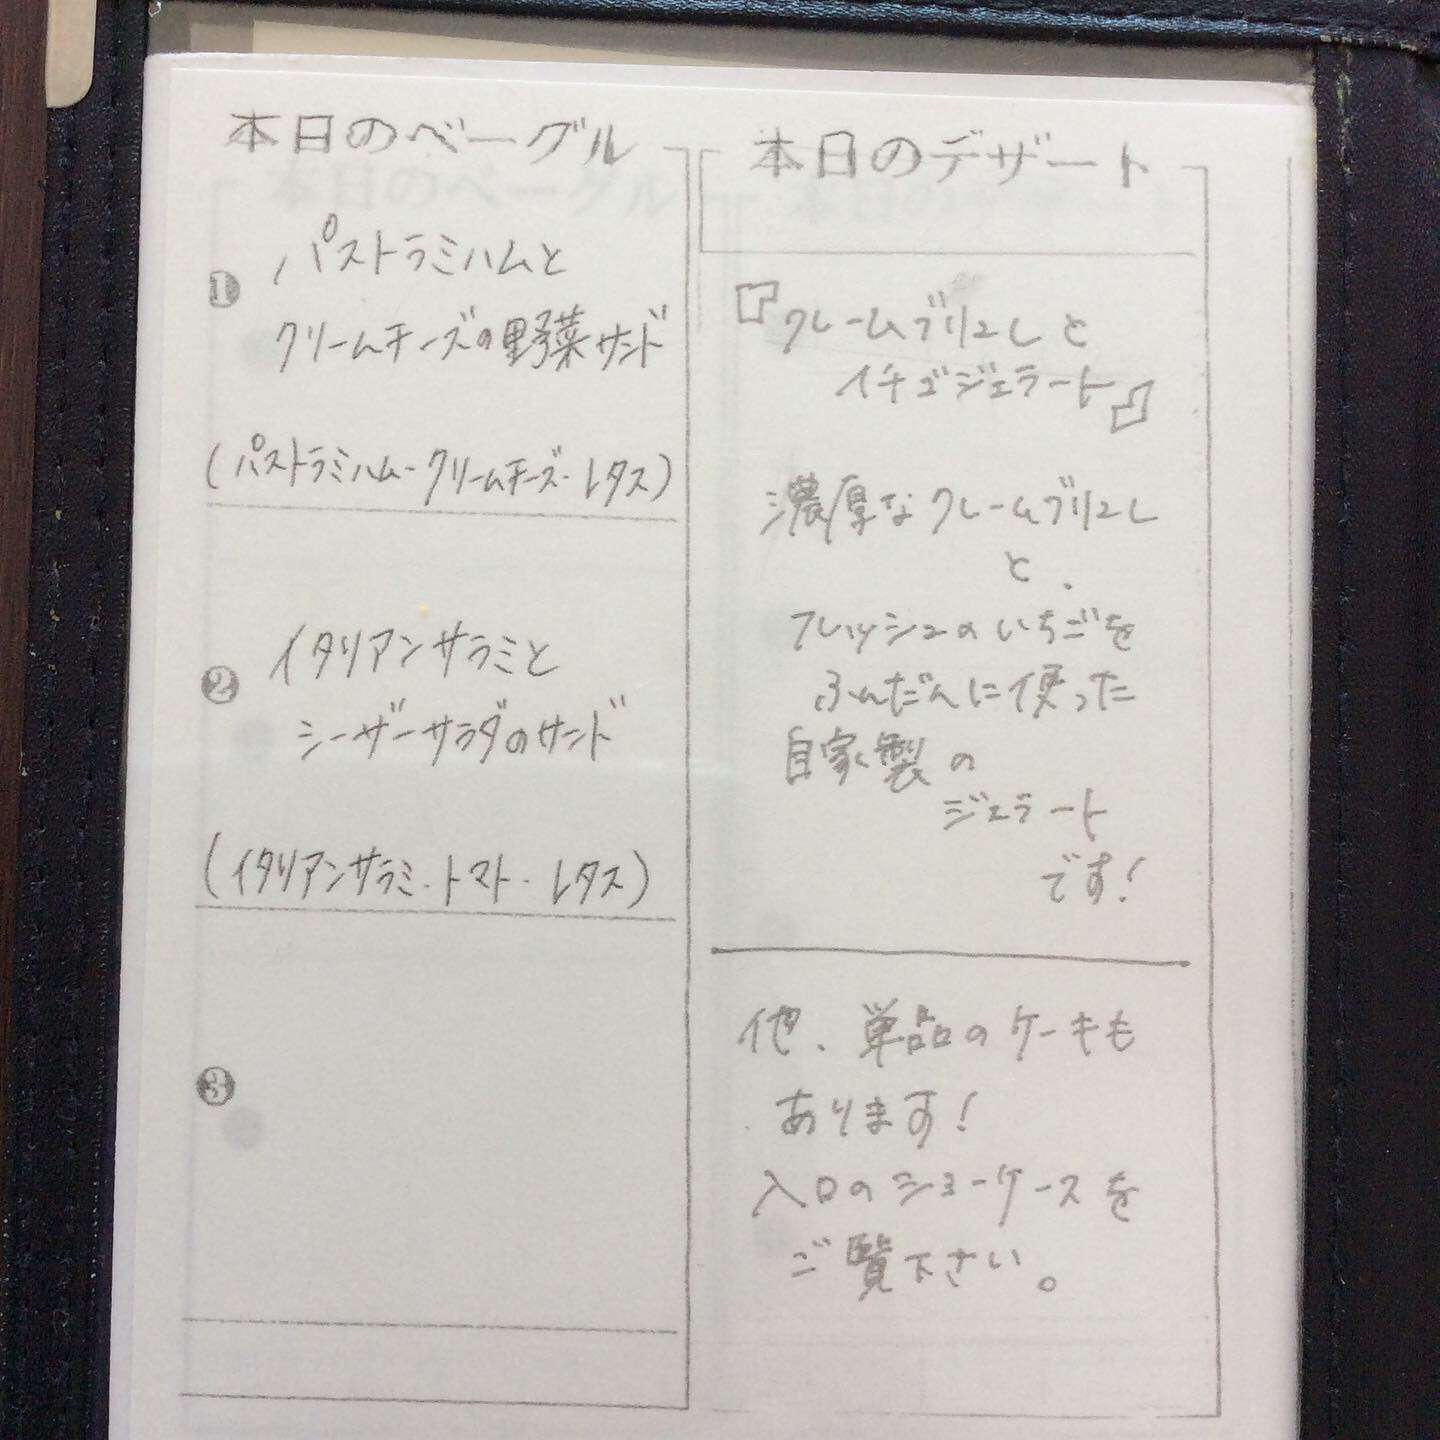 本日のベーグル
❶ パストラミハムと
クリームチーズの野菜サンド
(パストラミハム・クリームチーズ・レタス)
❷ イタリアンサラミと
シーザーサラダのサンド
(イタリアンサラミ・トマト・レタス)
❸
本日のデザート
『クレームブリュレと
イチゴジェラート』
濃厚なクレームブリュレ
と、
フレッシュのいちごを
ふんだんに使った
自家製の
ジェラート
です!
他、単品のケーキも
あります!
入口のショーケースを
ご覧下さい。